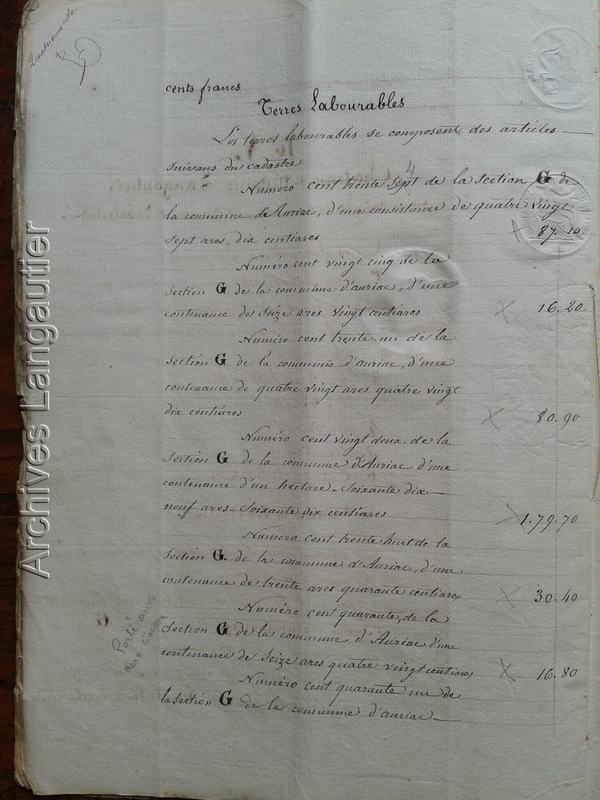 cents francs
Terres Labourables
Les terres labourables se composent des articles
suivans du cadastre
4
Numéro cent trente sept de la section G de
la commune d'Auriac, d'une consistance de quatre vingt
sept ares, dix centiares × 87.10
Numéro cent vingt cinq de la
section G de la commune d'auriac, d'une
contenance de seize ares vingt centiares × 16.20
Numéro cent trente un de la
section G de la commune d'auriac, d'une
contenance de quatre vingt ares quatre vingt
dix centiares × 80.90
Numéro cent vingt deux de la
section G de la commune d'Auriac d'une
contenance d'un hectare - soixante dix
neuf ares - soixante dix centiares × 1.79.70
Numéro cent trente huit de la
section G. de la commune d'Auriac, d'une
contenance de trente ares quarante centiares × 30.40
Numéro cent quarante, de la
section G de la commune d'Auriac d'une
contenance de seize ares quatre vingt centiares × 16.80
Porté
Numéro cent quarante un de
la section G de la commune d'auriac
Archives Langautier